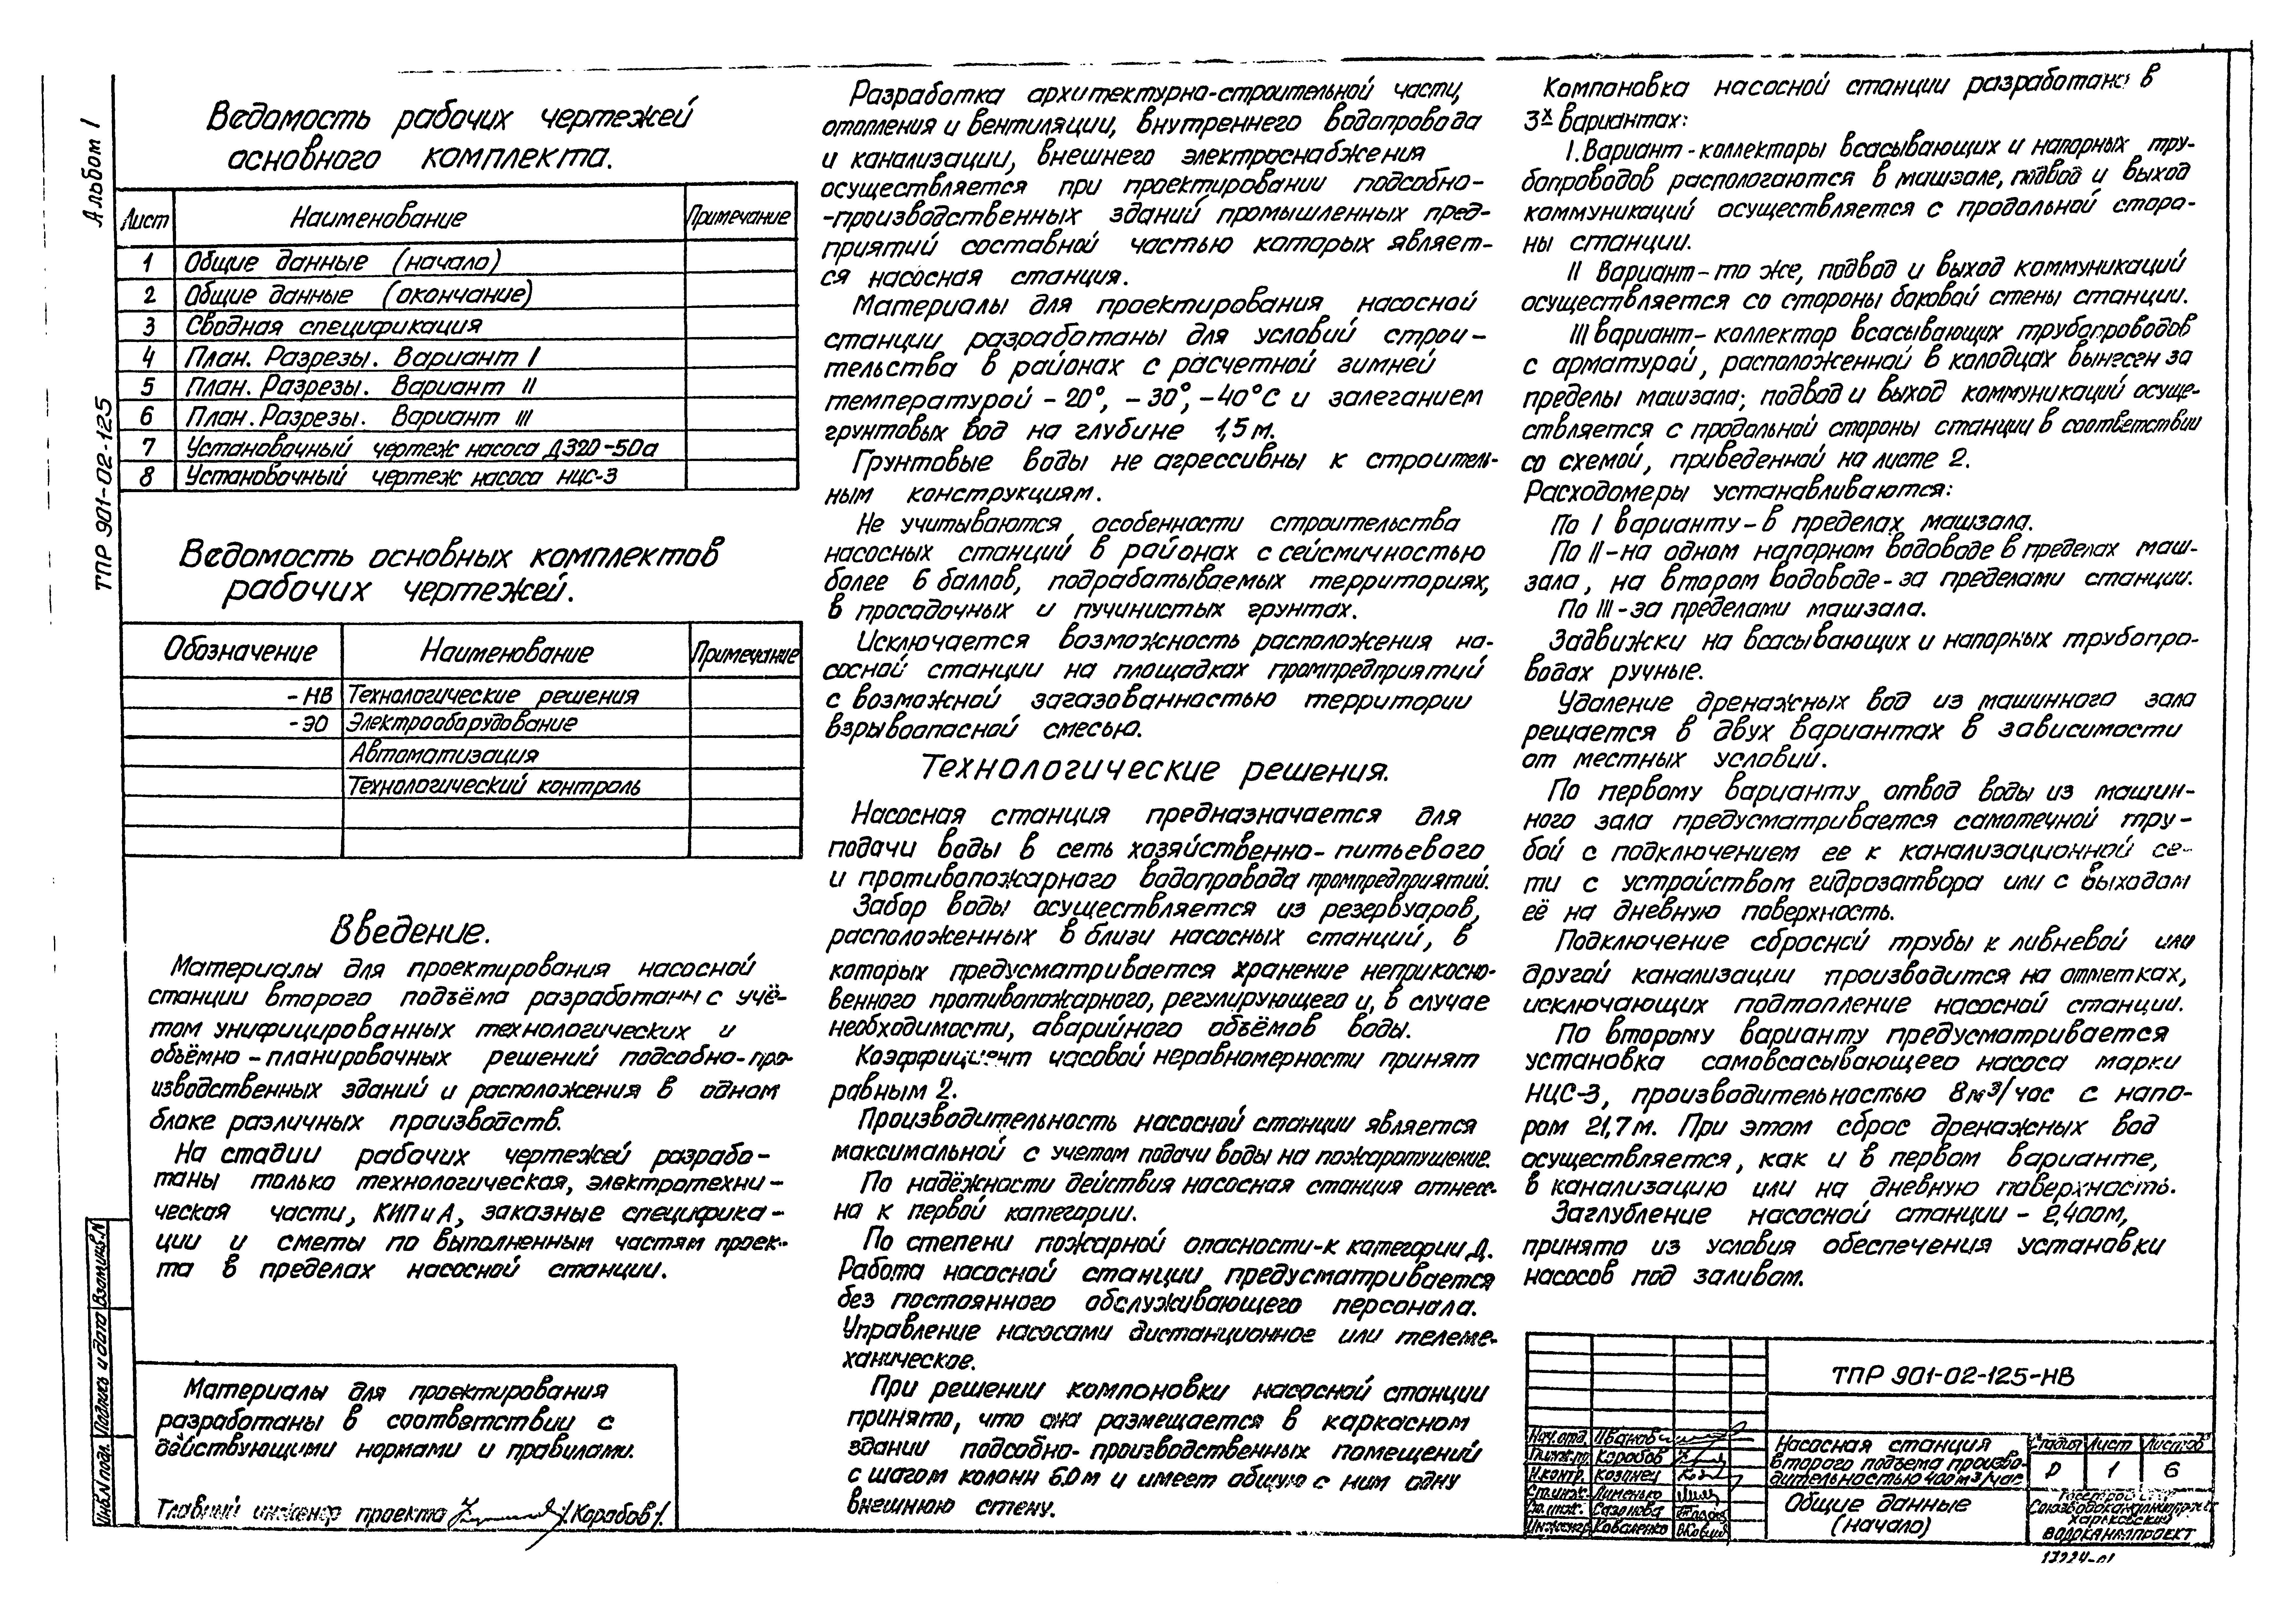 Альбом I
ТПР 901-02-125
Ведомость рабочих чертежей
основного комплекта.
Лист Наименование Примечание
1 Общие данные (начало)
2 Общие данные (окончание)
3 Сводная спецификация
4 План. Разрезы. Вариант I
5 План. Разрезы. Вариант II
6 План. Разрезы. Вариант III
7 Установочный чертеж насоса Д320-50а
8 Установочный чертеж насоса НЦС-3
Ведомость основных комплектов
рабочих чертежей.
Обозначение Наименование Примечание
-НВ Технологические решения
-ЭО Электрооборудование
Автоматизация
Технологический контроль
Введение.
Материалы для проектирования насосной
станции второго подъёма разработаны с учё-
том унифицированных технологических и
объёмно-планировочных решений подсобно-про-
изводственных зданий и расположения в одном
блоке различных производств.
На стадии рабочих чертежей разрабо-
таны только технологическая, электротехни-
ческая части, КИП и А, заказные специфика-
ции и сметы по выполненным частям проек-
та в пределах насосной станции.
Материалы для проектирования
разработаны в соответствии с
действующими нормами и правилами.
Главный инженер проекта /Коробов/.
Инв.N подл. Подпись и дата Взам.инв.N
Разработка архитектурно-строительной части,
отопления и вентиляции, внутреннего водопровода
и канализации, внешнего электроснабжения
осуществляется при проектировании подсобно-
-производственных зданий промышленных пред-
приятий составной частью которых являет-
ся насосная станция.
Материалы для проектирования насосной
станции разработаны для условий строи-
тельства в районах с расчетной зимней
температурой -20°, -30°, -40°С и залеганием
грунтовых вод на глубине 1,5 м.
Грунтовые воды не агрессивны к строитель-
ным конструкциям.
Не учитываются особенности строительства
насосных станций в районах с сейсмичностью
более 6 баллов, подрабатываемых территориях,
в просадочных и пучинистых грунтах.
Исключается возможность расположения на-
сосной станции на площадках промпредприятий
с возможной загазованностью территории
взрывоопасной смесью.
Технологические решения.
Насосная станция предназначается для
подачи воды в сеть хозяйственно-питьевого
и противопожарного водопровода промпредприятий.
Забор воды осуществляется из резервуаров,
расположенных в близи насосных станций, в
которых предусматривается хранение неприкосно-
венного противопожарного, регулирующего и, в случае
необходимости, аварийного объёмов воды.
Коэффициент часовой неравномерности принят
равным 2.
Производительность насосной станции является
максимальной с учетом подачи воды на пожаротушение.
По надёжности действия насосная станция отнесе-
на к первой категории.
По степени пожарной опасности-к категории Д.
Работа насосной станции предусматривается
без постоянного обслуживающего персонала.
Управление насосами дистанционное или телеме-
ханическое.
При решении компоновки насосной станции
принято, что она размещается в каркасном
здании подсобно-производственных помещений
с шагом колонн 6.0 м и имеет общую с ним одну
внешнюю стену.
Компановка насосной станции разработана в
3х вариантах:
I. Вариант - коллекторы всасывающих и напорных тру-
бопроводов распологаются в машзале, подвод и выход
коммуникаций осуществляется с продольной сторо-
ны станции.
II Вариант - то же, подвод и выход коммуникаций
осуществляется со стороны боковой стены станции.
III вариант - коллектор всасывающих трубопроводов
с арматурой, расположенной в колодцах вынесен за
пределы машзала; подвод и выход коммуникаций осуще-
ствляется с продольной стороны станции в соответствии
со схемой, приведенной на листе 2.
Расходомеры устанавливаются:
По I варианту - в пределах машзала.
По II - на одном напорном водоводе в пределах маш-
зала, на втором водоводе - за пределами станции.
По III - за пределами машзала.
Задвижки на всасывающих и напорных трубопро-
водах ручные.
Удаление дренажных вод из машинного зала
решается в двух вариантах в зависимости
от местных условий.
По первому варианту отвод воды из машин-
ного зала предусматривается самотечной тру-
бой с подключением ее к канализационной се-
ти с устройством гидрозатвора или с выходом
её на дневную поверхность.
Подключение сбросной трубы к ливневой или
другой канализации производится на отметках,
исключающих подтопление насосной станции.
По второму варианту предусматривается
установка самовсасывающего насоса марки
НЦС-3, производительностью 8 м³/час с напо-
ром 21,7 м. При этом сброс дренажных вод
осуществляется, как и в первом варианте,
в канализацию или на дневную поверхность.
Заглубление насосной станции - 2,400 м,
принято из условия обеспечения установки
насосов под заливом.
ТПР 901-02-125-НВ
Нач.отд. Иванов
Гл.инж.пр. Коробов
Н.контр. Козинец
Ст.инж.
Сазонова
Инженер Коваленко
Насосная станция
второго подъема произво-
дительностью 400 м³/час
Стадия Лист Листов
Р 1 6
Общие данные
(начало)
Госстрой СССР
Союзводоканалпроект
Харьковский
ВОДОКАНАЛПРОЕКТ
17224-01